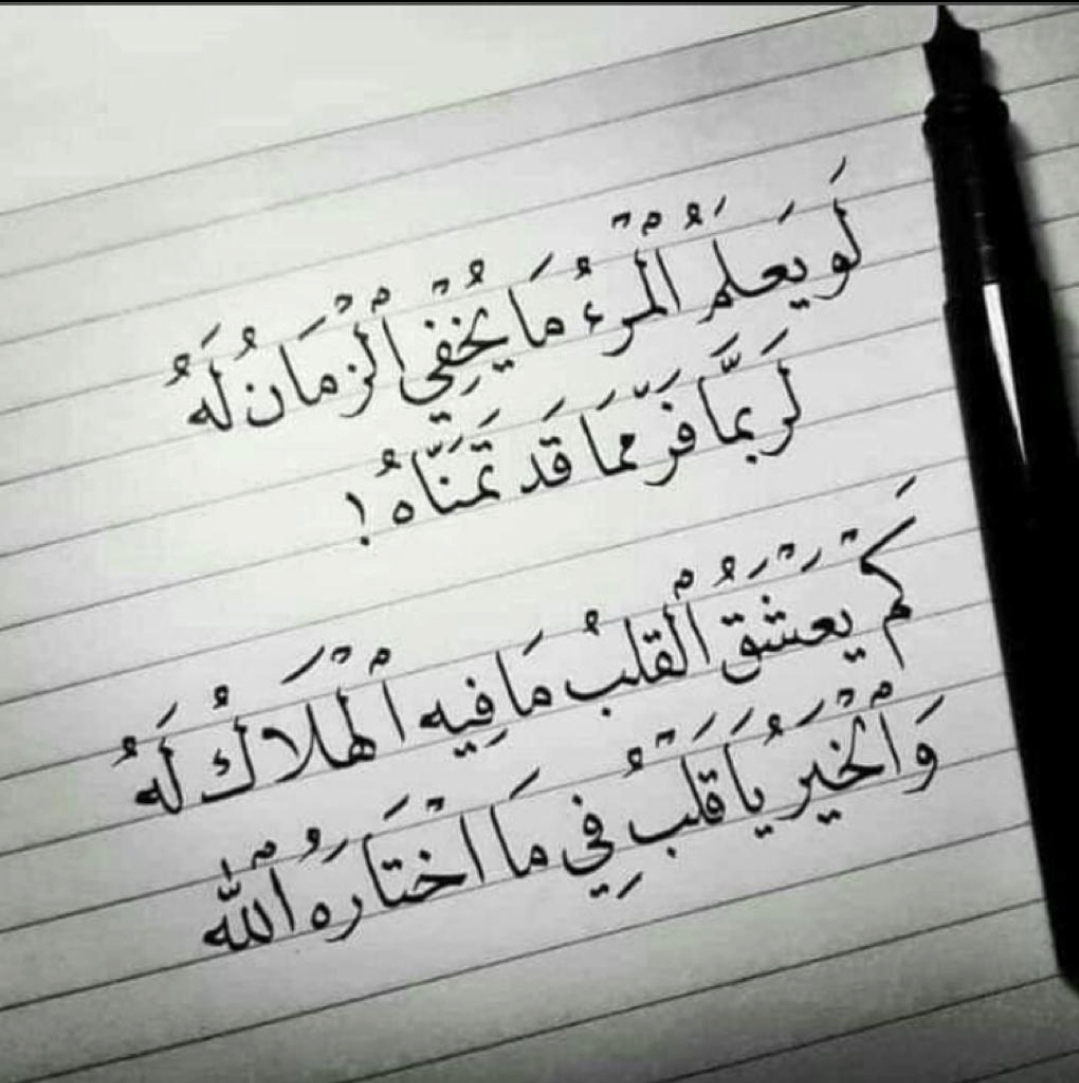 لَو يَعلَمُ الْمَرْءُ مَا يُخْفِي الْزْمَانُ لَهُ
لَرَبمَّا فَرّ ممَا قَد تَمَنَّاهُ !
كَمْ يَعْشَقُ الْقلبُ مَا فِيه الْهْلَاكُ لَهُ
وَالْخَيْرُ يَا قَلْبُ فِي مَا اخْتَارَهُ اللّٰه